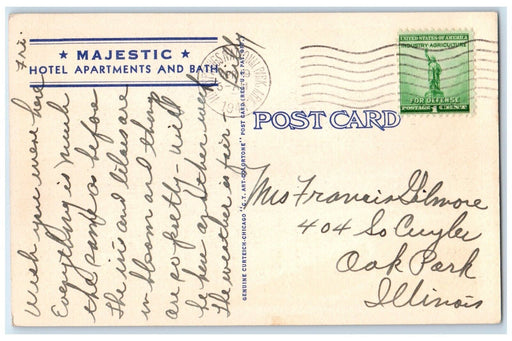 ★ MAJESTIC ★
HOTEL APARTMENTS AND BATH
Fri.
Wish you were here
Everything is much
the same as before
The iris and lilacs are
in bloom and they
are so pretty - will
be here another week
The weather is fair
Billy
GENUINE CURTEICH-CHICAGO "C.T. ART-COLORTONE" POST CARD (REG. U.S. PAT. OFF.)
POST CARD
UNITED STATES OF AMERICA
INDUSTRY AGRICULTURE
FOR DEFENSE
POSTAGE 1 CENT
Mrs Francis Gilmore
404 So Cuyler
Oak Park
Illinois